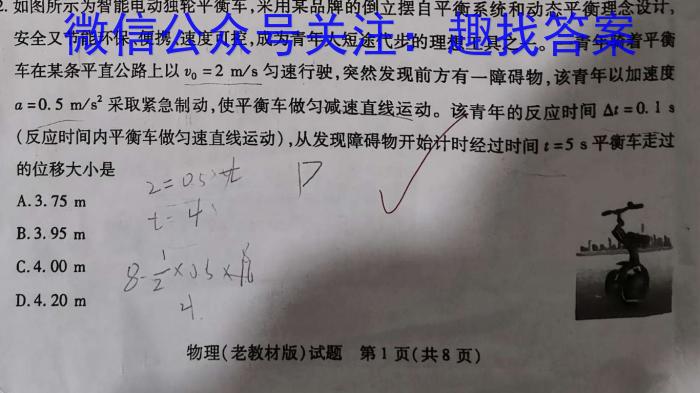 2. 如图所示为智能电动独轮平衡车,采用某品牌的倒立摆自平衡系统和动态平衡理念设计,
安全又节能环保,便携,速度可控,成为青年人短途代步的理想工具之一。一青年骑着平衡
微信公众号关注:趣找答案
车在某条平直公路上以 v₀=2 m/s 匀速行驶,突然发现前方有一障碍物,该青年以加速度
a=0.5 m/s² 采取紧急制动,使平衡车做匀减速直线运动。该青年的反应时间 Δt=0.1 s
(反应时间内平衡车做匀速直线运动),从发现障碍物开始计时经过时间 t=5 s 平衡车走过
的位移大小是
2=0.5×t
D
A. 3.75 m
t=4
B. 3.95 m
C. 4.00 m
8-½×0.5×16
D. 4.20 m
4
物理(老教材版)试题 第1页(共8页)